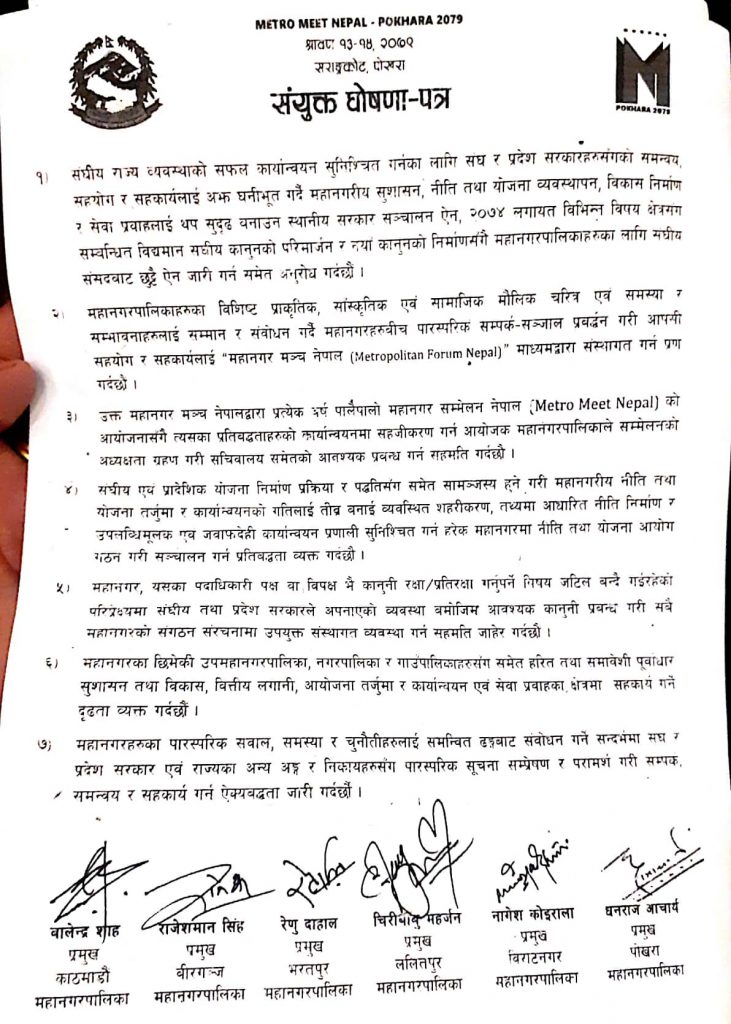 METRO MEET NEPAL - POKHARA 2079
श्रावण १३-१४, २०७९
सराङकोट, पोखरा
संयुक्त घोषणा-पत्र
M
POKHARA 2079
१) संघीय राज्य व्यवस्थाको सफल कार्यान्वयन सुनिश्चित गर्नका लागि संघ र प्रदेश सरकारहरुसंगको समन्वय,
सहयोग र सहकार्यलाई अझ घनीभूत गर्दै महानगरीय सुशासन, नीति तथा योजना व्यवस्थापन, विकास निर्माण
र सेवा प्रवाहलाई थप सुदृढ वनाउन स्थानीय सरकार सञ्चालन ऐन, २०७४ लगायत विभिन्न विषय क्षेत्रसंग
सम्वन्धित विद्यमान संघीय कानुनको परिमार्जन र नयाँ कानुनको निर्माणसंगै महानगरपालिकाहरुका लागि संघीय
संसदबाट छुट्टै ऐन जारी गर्न समेत अनुरोध गर्दछौं ।
२) महानगरपालिकाहरुका विशिष्ट प्राकृतिक, सांस्कृतिक एवं सामाजिक मौलिक चरित्र एवं समस्या र
सम्भावनाहरुलाई सम्मान र संवोधन गर्दै महानगरहरुवीच पारस्परिक सम्पर्क-सञ्जाल प्रवर्द्धन गरी आपसी
सहयोग र सहकार्यलाई "महानगर मञ्च नेपाल (Metropolitan Forum Nepal)" माध्यमद्वारा संस्थागत गर्न प्रण
गर्दछौं ।
३) उक्त महानगर मञ्च नेपालद्वारा प्रत्येक वर्ष पालैपालो महानगर सम्मेलन नेपाल (Metro Meet Nepal) को
आयोजनासंगै त्यसका प्रतिबद्धताहरुको कार्यान्वयनमा सहजीकरण गर्न आयोजक महानगरपालिकाले सम्मेलनको
अध्यक्षता ग्रहण गरी सचिवालय समेतको आवश्यक प्रवन्ध गर्न सहमति गर्दछौं ।
४) संघीय एवं प्रादेशिक योजना निर्माण प्रक्रिया र पद्धतिसंग समेत सामञ्जस्य हुने गरी महानगरीय नीति तथा
योजना तर्जुमा र कार्यान्वयनको गतिलाई तीव्र वनाई व्यवस्थित शहरीकरण, तथ्यमा आधारित नीति निर्माण र
उपलब्धिमूलक एवं जवाफदेही कार्यान्वयन प्रणाली सुनिश्चित गर्न हरेक महानगरमा नीति तथा योजना आयोग
गठन गरी सञ्चालन गर्न प्रतिबद्धता व्यक्त गर्दछौं ।
५) महानगर, यसका पदाधिकारी पक्ष वा विपक्ष भै कानुनी रक्षा/प्रतिरक्षा गर्नुपर्ने विषय जटिल बन्दै गईरहेको
परिप्रेक्ष्यमा संघीय तथा प्रदेश सरकारले अपनाएको व्यवस्था बमोजिम आवश्यक कानुनी प्रबन्ध गरी सबै
महानगरको संगठन संरचनामा उपयुक्त संस्थागत व्यवस्था गर्न सहमति जाहेर गर्दछौं ।
६) महानगरका छिमेकी उपमहानगरपालिका, नगरपालिका र गाउँपालिकाहरुसंग समेत हरित तथा समावेशी पूर्वाधार
सुशासन तथा विकास, वित्तीय लगानी, आयोजना तर्जुमा र कार्यान्वयन एवं सेवा प्रवाहका क्षेत्रमा सहकार्य गर्ने
दृढता व्यक्त गर्दछौं ।
७) महानगरहरुका पारस्परिक सवाल, समस्या र चुनौतीहरुलाई समन्वित ढङ्गबाट संवोधन गर्ने सन्दर्भमा संघ र
प्रदेश सरकार एवं राज्यका अन्य अङ्ग र निकायहरुसंग पारस्परिक सूचना सम्प्रेषण र परामर्श गरी सम्पर्क,
समन्वय र सहकार्य गर्न ऐक्यबद्धता जारी गर्दछौं ।
वालेन्द्र शाह राजेशमान सिंह रेणु दाहाल चिरीबाबु महर्जन नागेश कोइराला धनराज आचार्य
प्रमुख प्रमुख प्रमुख प्रमुख प्रमुख प्रमुख
काठमाडौं वीरगञ्ज भरतपुर ललितपुर विराटनगर पोखरा
महानगरपालिका महानगरपालिका महानगरपालिका महानगरपालिका महानगरपालिका महानगरपालिका